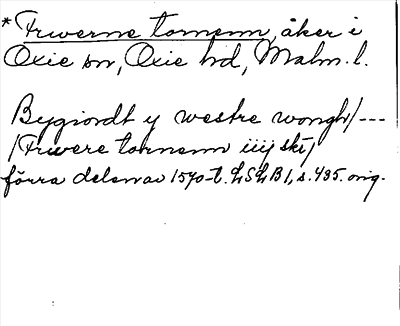 * Frwerne tornenn, åker i
Oxie sn, Oxie hd, Malm. l.
Bygiordt y westre wongh/---
/Frwere tornenn iiij skr/
förra delen av 1570-t. LSLB1, s. 435. orig.